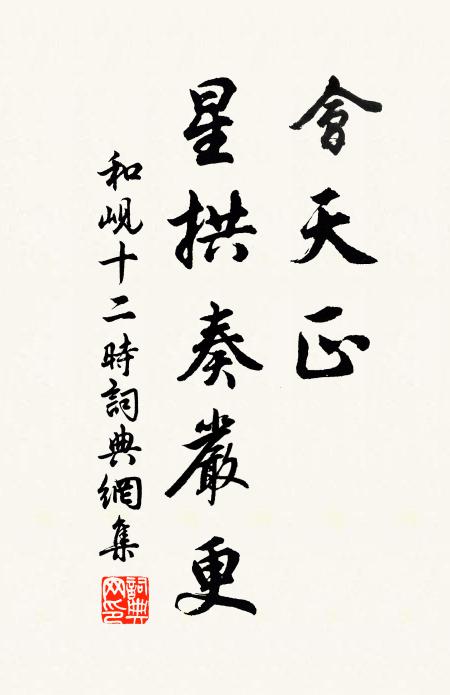 會天正
星拱奏嚴更
和峴十二時詞典網集
詞典網印